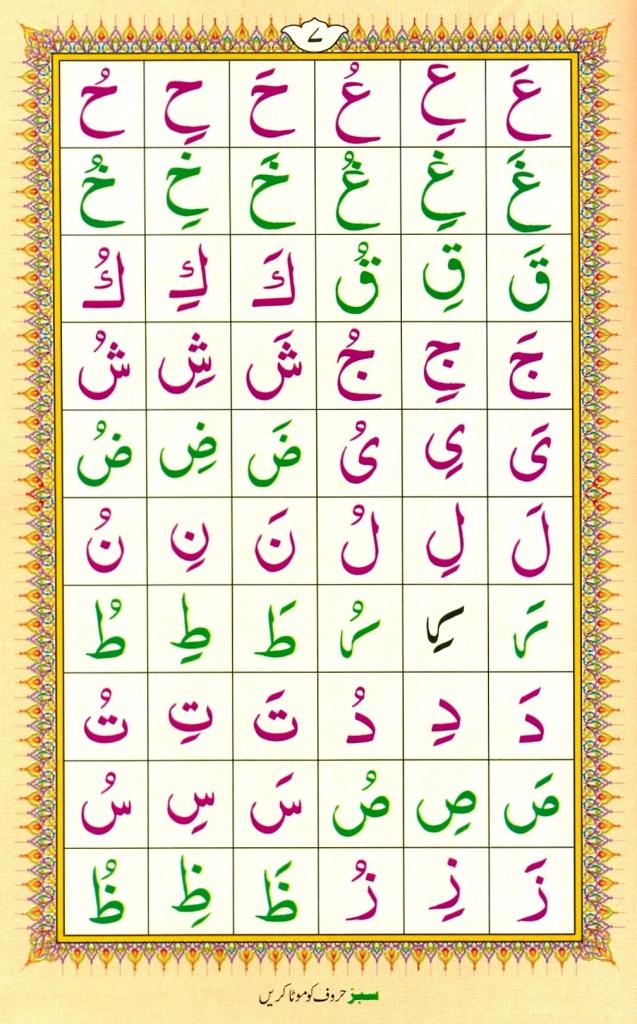 ۷
عَ عِ عُ حَ حِ حُ
غَ غِ غُ خَ خِ خُ
قَ قِ قُ كَ كِ كُ
جَ جِ جُ شَ شِ شُ
یَ یِ یُ ضَ ضِ ضُ
لَ لِ لُ نَ نِ نُ
رَ رِ رُ طَ طِ طُ
دَ دِ دُ تَ تِ تُ
صَ صِ صُ سَ سِ سُ
زَ زِ زُ ظَ ظِ ظُ
سبز حروف کو موٹا کریں